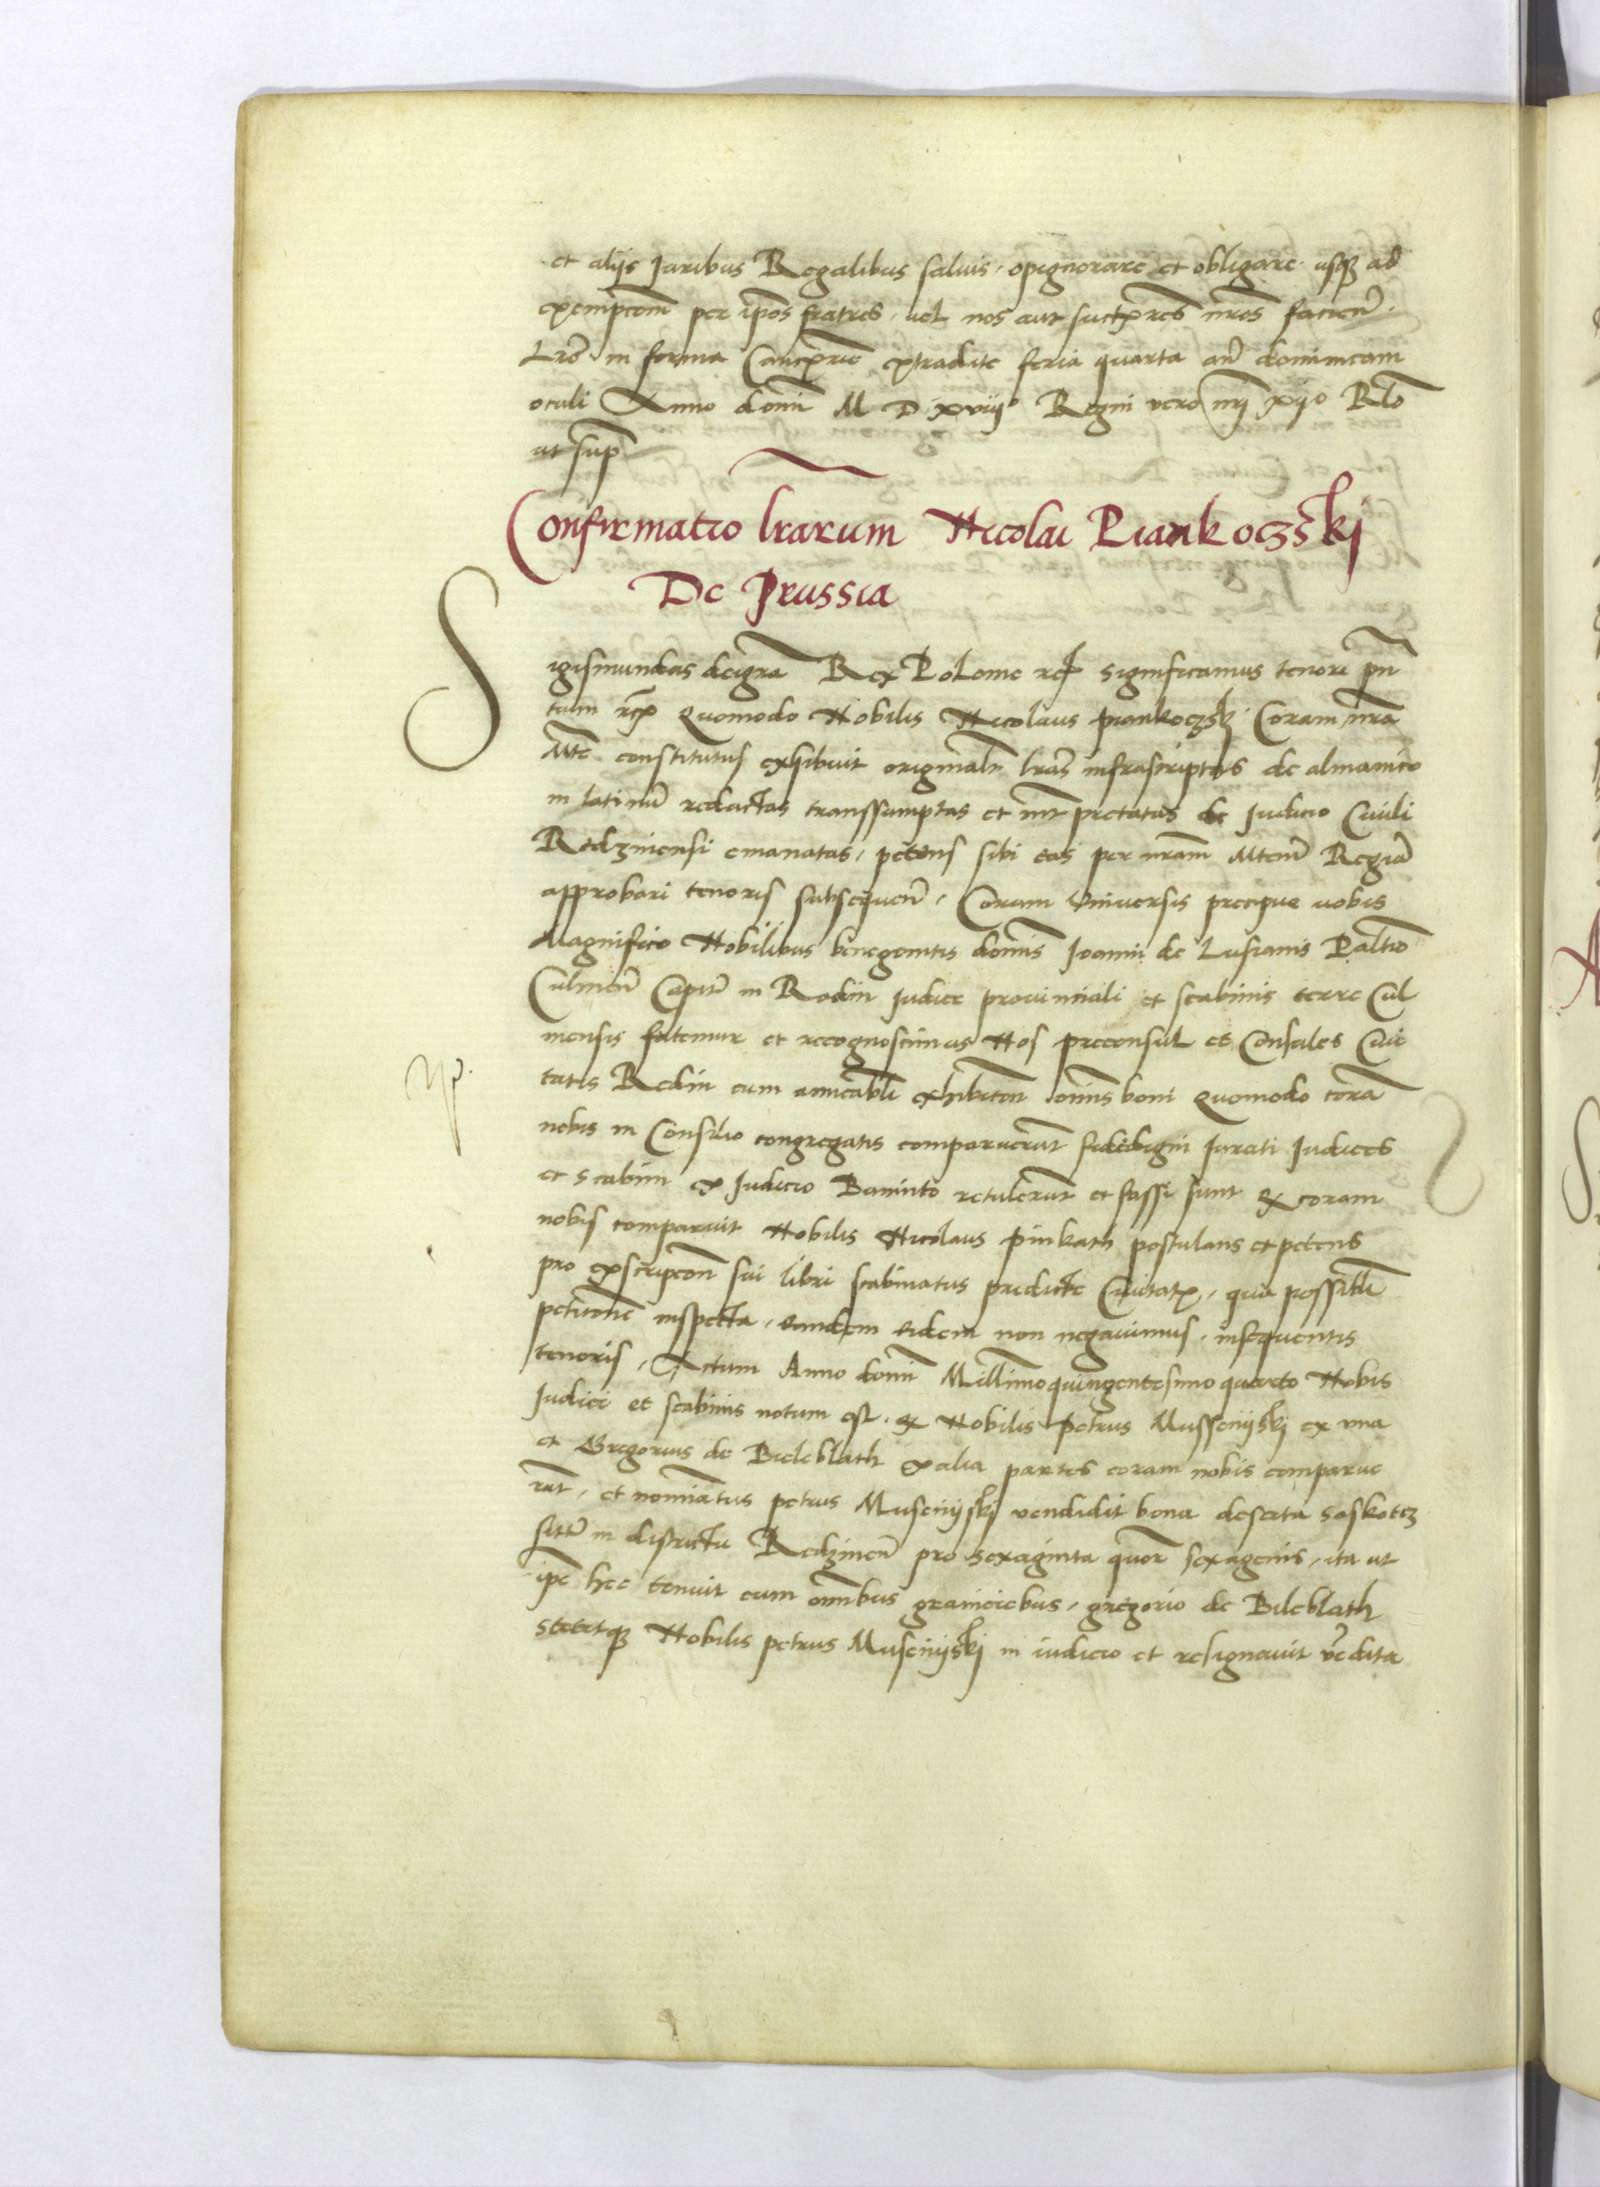 et alijs Juribus Regalibus saluis, opignorare et obligare usqz ad
exempcom̄ per ip̄os fratres, uel nos aut succ̄res nr̄os faciend̄.
Lr̄e in forma Canc̄rie extradite feria quarta an̄ dominicam
oculi Anno domī M D xviij° Regni vero nr̄i xij° Relō
ut sup̄
Confirmatio lr̄arum Nicolai Piankoczski
De Prussia
Sigismundus dei gr̄a Rex Polonie rc̄ significamus tenore pn̄
tum rc̄ Quomodo Nobilis Nicolaus piankoczsky Coram nr̄a
Mte constitutus exhibuit originaln̄ lr̄as infrascriptas de almanico
in latinū redactas transsumptas et int̄pretatas de Judicio Ciuili
Redzinensi emanatas, petens sibi eas per nr̄am Mtem̄ Regiā
approbari tenoris subsequen̄. Coram Vniuersis precipue uobis
Magnifico Nobilibus benegenitis domīs Joanni de Lusianis Paltīo
Culmen̄ Capit̄ in Rodin Judice prouinciali et scabinis terre Cul
mensis fatemur et recognoscimus Nos preconsul et Consules Ciui
tatis Redin cum amicabili exhibicōn om̄is boni Quomodo corā
nobis in Consilio congregatis comparuerūt fidedigni Jurati Judices
et scabini ex Judicio Bannito retulerūt et fassi sunt Qz coram
nobis comparuit Nobilis Nicolaus pinkath postulans et petens
pro exscripcōn sui libri scabinatus predicte Ciuitatz, qua possibili
petitione inspecta, eandem eidem non negauimus, insequentis
tenoris, Actum Anno domī Millimoquingentesimo quarto Nobis
Judici et scabinis notum est, qz Nobilis petrus Mussenijskj ex vna
et Gregorius de Bieleblath ex alia partes coram nobis comparue
rūt, et nomiātus petrus Musenijskj vendidit bona deserta saskotcz
sitt̄ in districtu Redzinen̄ pro sexaginta quor̄ sexagenis, ita ut
ip̄e hec tenuit cum om̄ibus graniciebus, gregorio de Bileblath
stetitqz Nobilis petrus Musenijskj in iudicio et resignauit vēdita